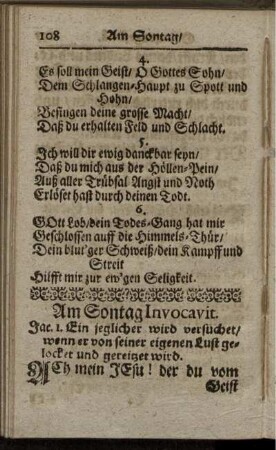 108 Am Sontag/
4.
Es soll mein Geist/ O Gottes Sohn/
Dem Schlangen-Haupt zu Spott und
Hohn/
Besingen deine grosse Macht/
Daß du erhalten Feld und Schlacht.
5.
Ich will dir ewig danckbar seyn/
Daß du mich aus der Höllen-Pein/
Auß aller Trübsal Angst und Noth
Erlöset hast durch deinen Todt.
6.
GOtt Lob/dein Todes-Gang hat mir
Geschlossen auff die Himmels-Thür/
Dein blut'ger Schweiß/dein Kampff und
Streit
Hilfft mir zur ew'gen Seligkeit.
Am Sontag Invocavit.
Jac. 1. Ein jeglicher wird versuchet/
wenn er von seiner eigenen Lust ge-
locket und gereitzet wird.
ACh mein JEsu! der du vom
Geist